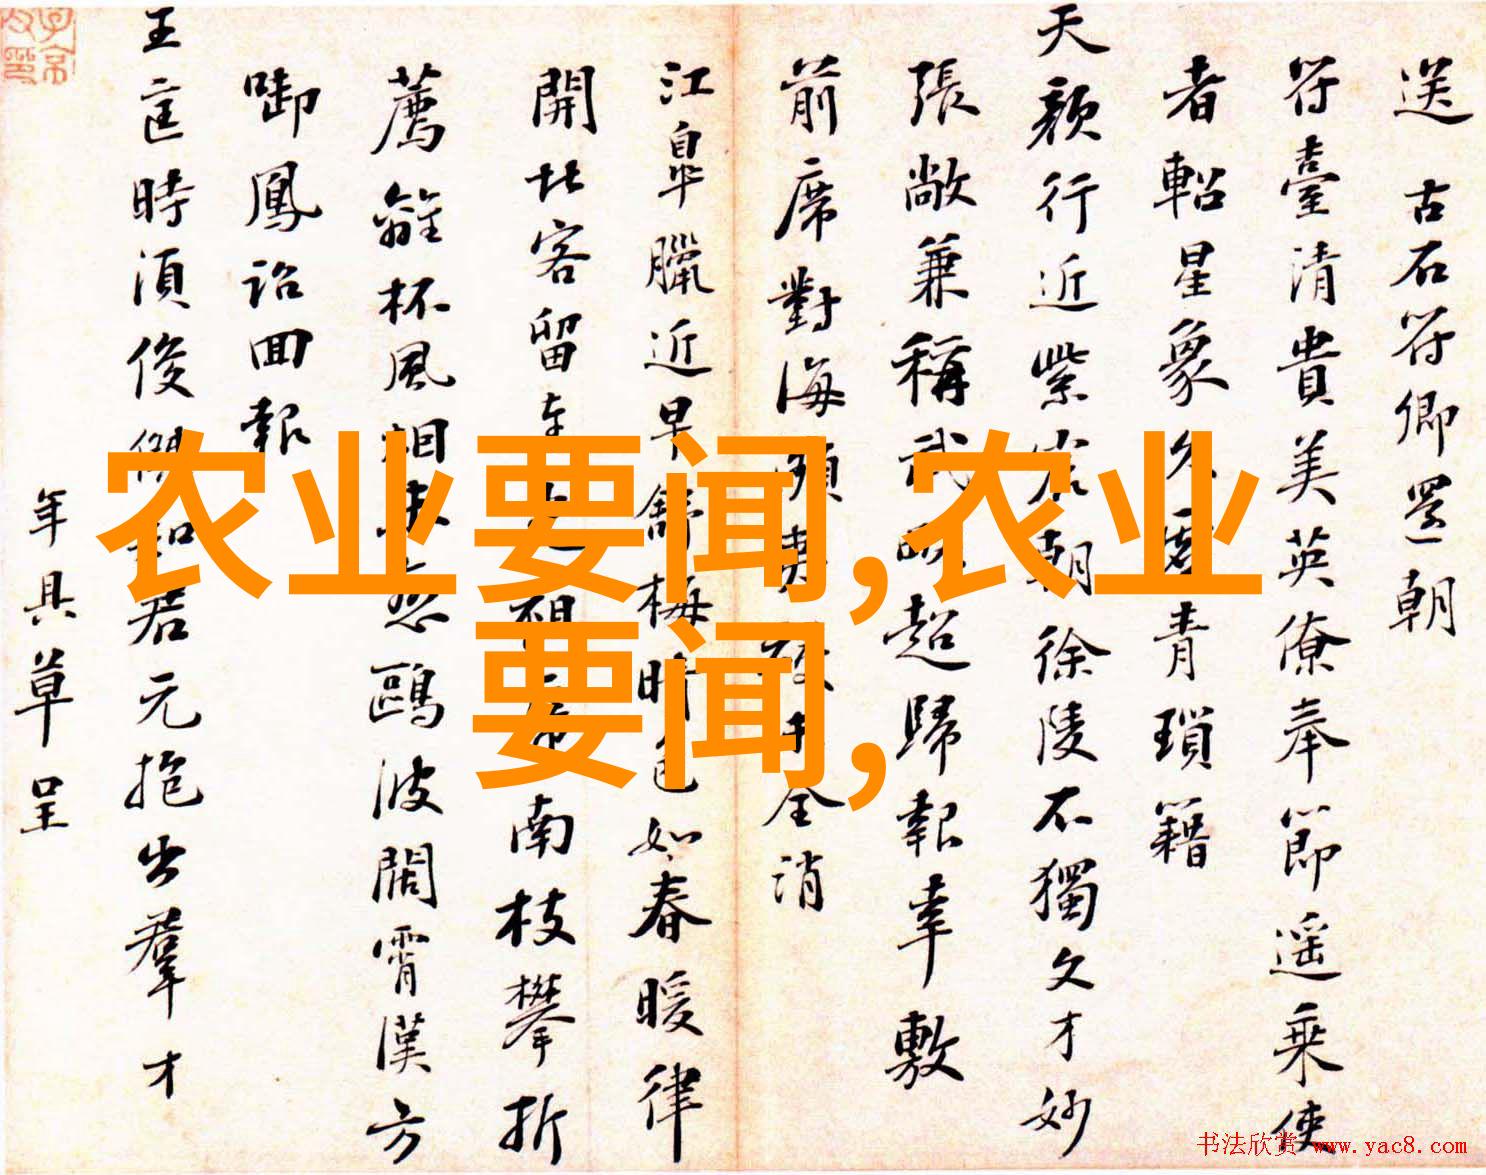 送古石符卿還朝
符臺清貴美英僚奉節遥乘使
者軺星象久
青瑣籍
天顔行近紫
朝徐陵不獨文才妙
張敞兼稱武
超歸報幸敷
前席對海
全消
江皐臘近早舒梅
色如春暖律
開北客留
南枝攀折
薦
杯風
鷗波闊霄漢方
啣鳳詔回報
王莛時須俊傑知君元抱出羣才
年具草呈
农业要闻,农业
要闻,
书法欣赏 www.yac8.com